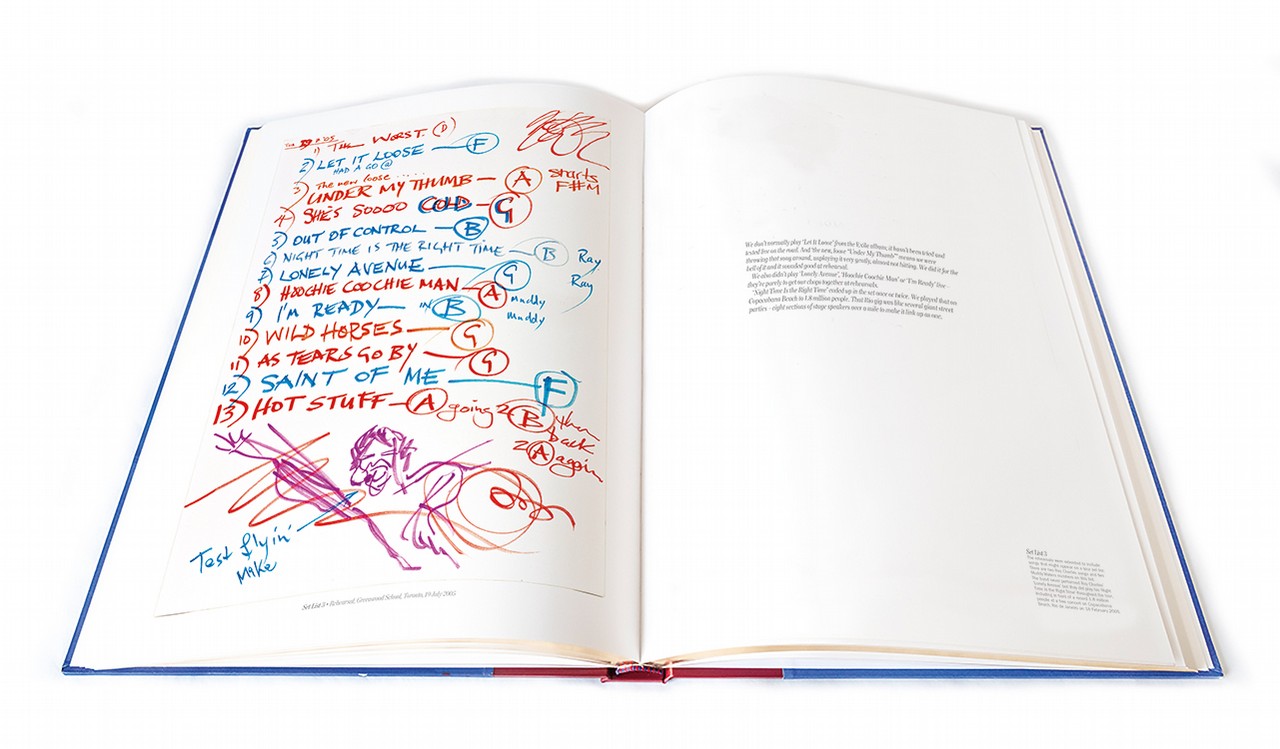 1) THE WORST. (D)
2) LET IT LOOSE — F
HAD A GO @
3) The new loose .....
UNDER MY THUMB — A starts
F#M
4) SHE'S SOOOO COLD — G
5) OUT OF CONTROL — B
6) NIGHT TIME IS THE RIGHT TIME — B Ray
7) LONELY AVENUE — G Ray
8) HOOCHIE COOCHIE MAN — A muddy
9) I'M READY — IN B muddy
10) WILD HORSES — G
11) AS TEARS GO BY — G
12) SAINT OF ME — F
13) HOT STUFF — A going 2 B then
back
2 A again
Test flyin'
Mike
Set List 3 • Rehearsal, Greenwood School, Toronto, 19 July 2005
We don't normally play 'Let It Loose' from the Exile album, it hasn't been tried and
tested live on the road. And 'the new, loose "Under My Thumb"' means we were
throwing that song around, applying it very gently, almost not hitting. We did it for the
hell of it and it sounded good at rehearsal.
We also didn't play 'Lonely Avenue', 'Hoochie Coochie Man' or 'I'm Ready' live –
they're purely to get our chops together at rehearsals.
'Night Time Is the Right Time' ended up in the set once or twice. We played that on
Copacabana Beach to 1.8 million people. That Rio gig was like several giant street
parties – eight sections of stage speakers over a mile to make it link up as one.
Set List 3